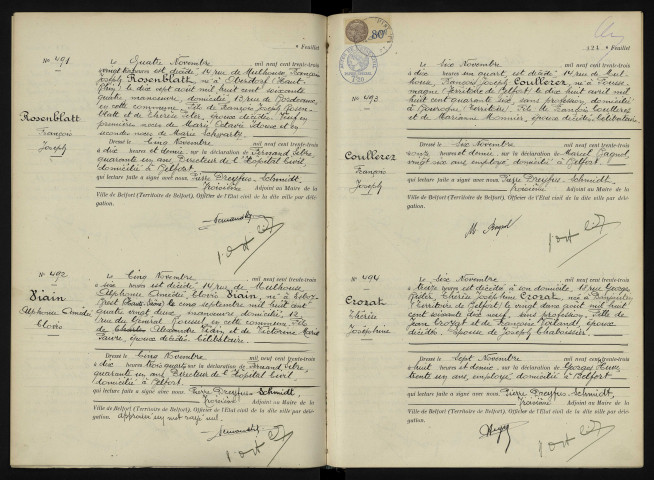 Feuillet
N° 491
Rosenblatt
François
Joseph
Le Quatre Novembre mil neuf cent trente-trois
est décédé 14 rue de Mulhouse François
Joseph Rosenblatt né à (Haut-
Rhin) le sept août mil huit cent soixante
quatre manœuvre, domicilié 13 rue de Bordeaux,
en cette commune, Fils de François Joseph Rosen-
blatt et de Thérèse époux décédés. Veuf en
premières noces de Marie Octavie et en
secondes noces de Marie Schwartz.
Dressé le Cinq Novembre mil neuf cent trente-trois
à dix heures et demie, sur la déclaration de Fernand
quarante un ans, Directeur de l'Hôpital Civil,
domicilié à Belfort
qui lecture faite a signé avec nous, Pierre Dreyfus-Schmidt,
Troisième Adjoint au Maire de la
Ville de Belfort (Territoire de Belfort), Officier de l'Etat civil de la dite ville par délé-
gation.
N° 492
Viain
Alphonse Amédée
Clovis
Le Cinq Novembre mil neuf cent trente-trois
à heures est décédé 14 rue de Mulhouse
Alphonse Amédée Clovis Viain, né à
le cinq septembre mil huit cent
quatre vingt deux, manœuvre domicilié 12
rue du Général en cette commune. Fils
de Alexandre Viain et de Victorine Marie
Faivre, époux décédés. Célibataire.
Dressé le Cinq Novembre mil neuf cent trente-trois
à dix heures trois quarts, sur la déclaration de Fernand
quarante un ans, Directeur de l'Hôpital Civil,
domicilié à Belfort
qui lecture faite a signé avec nous, Pierre Dreyfus-Schmidt,
Troisième Adjoint au Maire de la
Ville de Belfort (Territoire de Belfort), Officier de l'Etat civil de la dite ville par délé-
gation. un mot rayé nul.
124 Feuillet
80
N° 493
Coullerez
François
Joseph
Le Six Novembre mil neuf cent trente-trois
à dix heures un quart, est décédé 14 rue de Mul-
house, François Joseph Coullerez, né à
magne (Territoire de Belfort) le huit avril mil
huit cent quarante six, sans profession, domicilié
à Bourogne (Territoire). Fils de François Coullerez
et de Marianne Monnier, époux décédés. Célibataire.
Dressé le Six Novembre mil neuf cent trente-trois
onze heures et demie, sur la déclaration de Marcel
vingt six ans, employé, domicilié à Belfort
qui lecture faite a signé avec nous, Pierre Dreyfus-Schmidt,
Troisième Adjoint au Maire de la
Ville de Belfort (Territoire de Belfort), Officier de l'Etat civil de la dite ville par délé-
gation.
N° 494
Crozat
Thérèse
Joséphine
Le Six Novembre mil neuf cent trente-trois
à treize heures est décédée à son domicile, 18 rue Georges
Thérèse Joséphine Crozat, née à
(Territoire de Belfort) le vingt deux août mil huit
cent soixante dix neuf, sans profession, Fille de
Jean Crozat et de Françoise époux
décédés. Epouse de Joseph
Dressé le Sept Novembre mil neuf cent trente-trois
huit heures et demie, sur la déclaration de Georges
trente un ans, employé, domicilié à Belfort
qui lecture faite a signé avec nous, Pierre Dreyfus-Schmidt,
Troisième Adjoint au Maire de la
Ville de Belfort (Territoire de Belfort), Officier de l'Etat civil de la dite ville par délé-
gation.